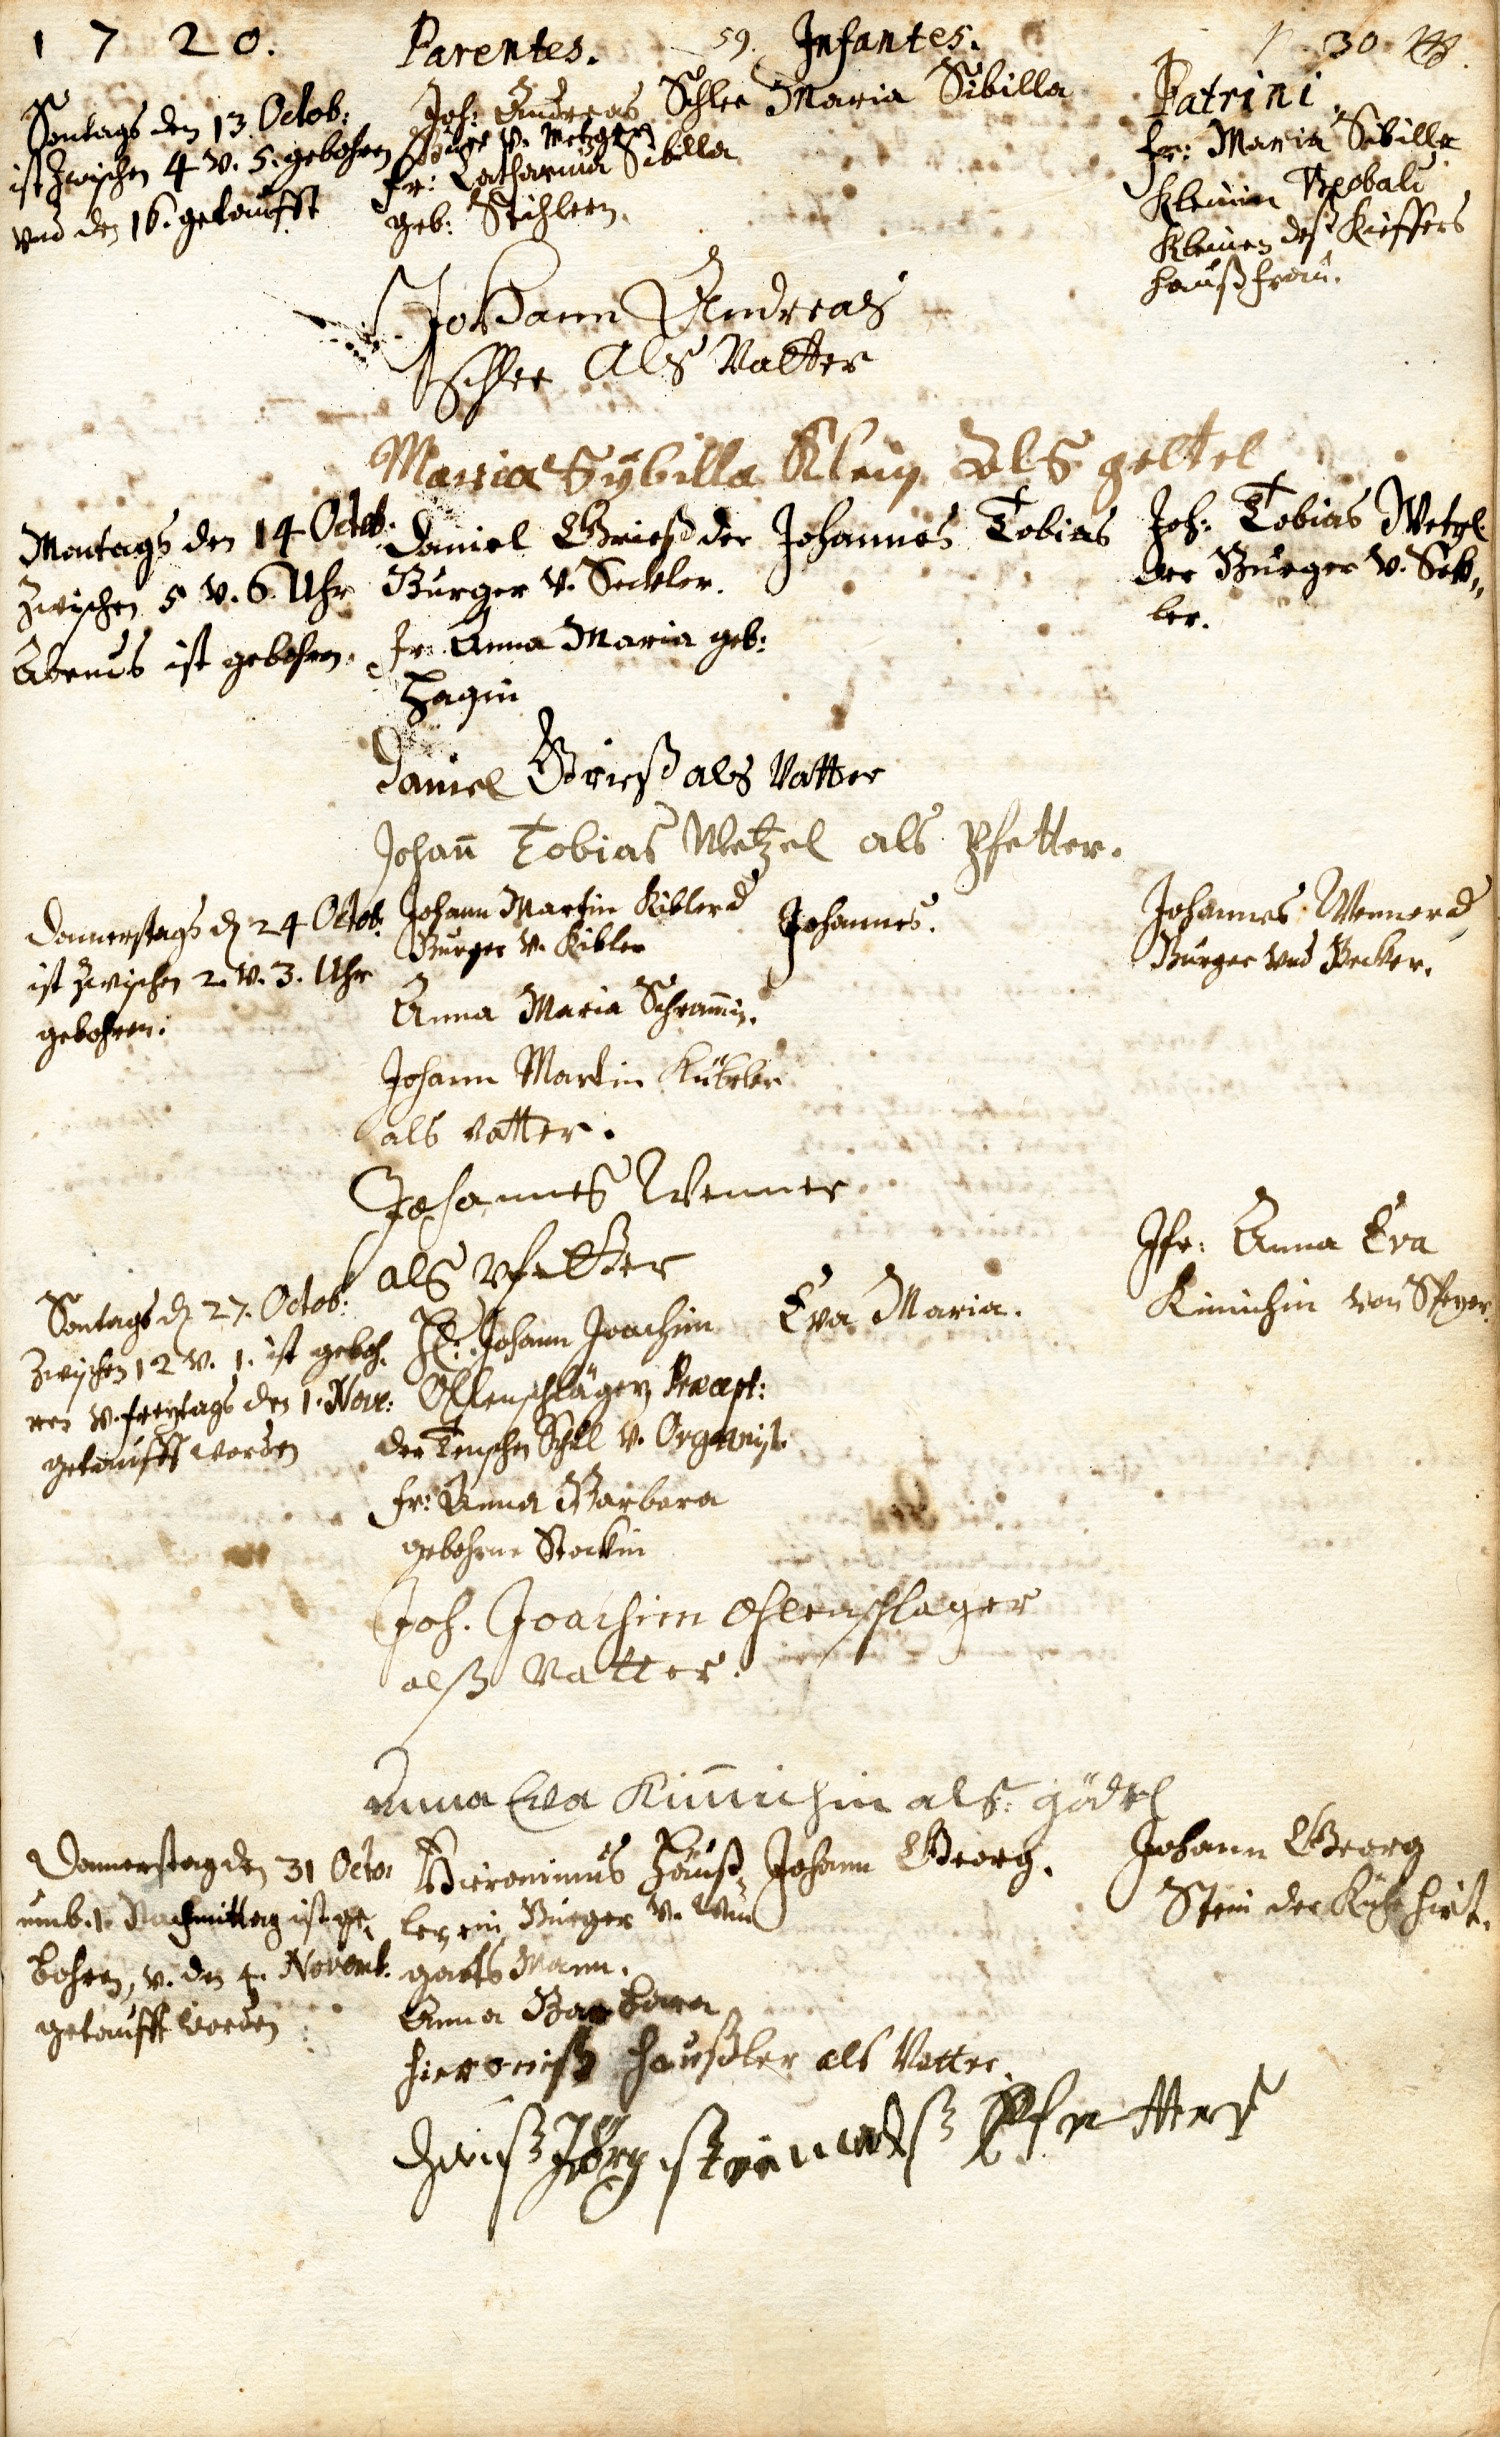 1720. Parentes. 59. Infantes. 30
Patrini.
Sontags den 13. Octob:
ist zwischen 4 v. 5. gebohren
vnd den 16. getaufft
Joh: Andreas Schlee
Burger v. Metzger
fr: Catharina Sibilla
geb: Stihlern.
Maria Sibilla
fr: Maria Sibilla
Kleinin
Kleinen deß Kieffers
haußfrau.
Johann Andreas
Schlee Als Vatter
Maria Sÿbilla Klein Als geltel
Montags den 14 Octob.
zwischen 5 v. 6. Uhr
Abends ist gebohren.
Daniel Grieß der
Burger v. Seckler.
fr: Anna Maria geb:
Hagin
Johannes Tobias
Joh: Tobias Wetzel
der Burger v. Sek„
ler.
Daniel Grieß als Vatter
Johan̄ Tobias Wetzel als Pfetter.
Donnerstags d. 24 Octob:
ist zwischen 2. v. 3. Uhr
gebohren.
Johann Martin Kibler d
Burger v. Kibler
Anna Maria Schram̄in.
Johannes.
Johannes Wenner d
Burger vnd Becker.
Johann Martin Kübler
als vatter.
Johannes Wenner
als pfetter
Sontags d. 27. Octob:
zwischen 12 v. 1. ist geboh„
ren v. freytags den 1. Nov:
getaufft worden
H: Johann Joachim
Ohlenschläger Præcept:
der Teutschen Schul v. Organist.
fr: Anna Barbara
gebohrne Stockin
Eva Maria.
Jfr: Anna Eva
Kimichin von Speyer.
Joh. Joachim Ohlenschlager
alß Vatter.
Anna Eva Kim̄ichin als: gödel
Donnerstag den 31 Octo:
umb. 1. Nachmittag ist ge„
bohren, v. den 4. Novemb.
getaufft worden
Hieronimus Häuß„
ler, ein Burger v. Win
garts Mann.
Anna Barbara
Johann Georg.
Johann Georg
Stein der Kühe hirt.
hieronimß haußler als Vatter.
Hanß Jörg stein alß Pfetter